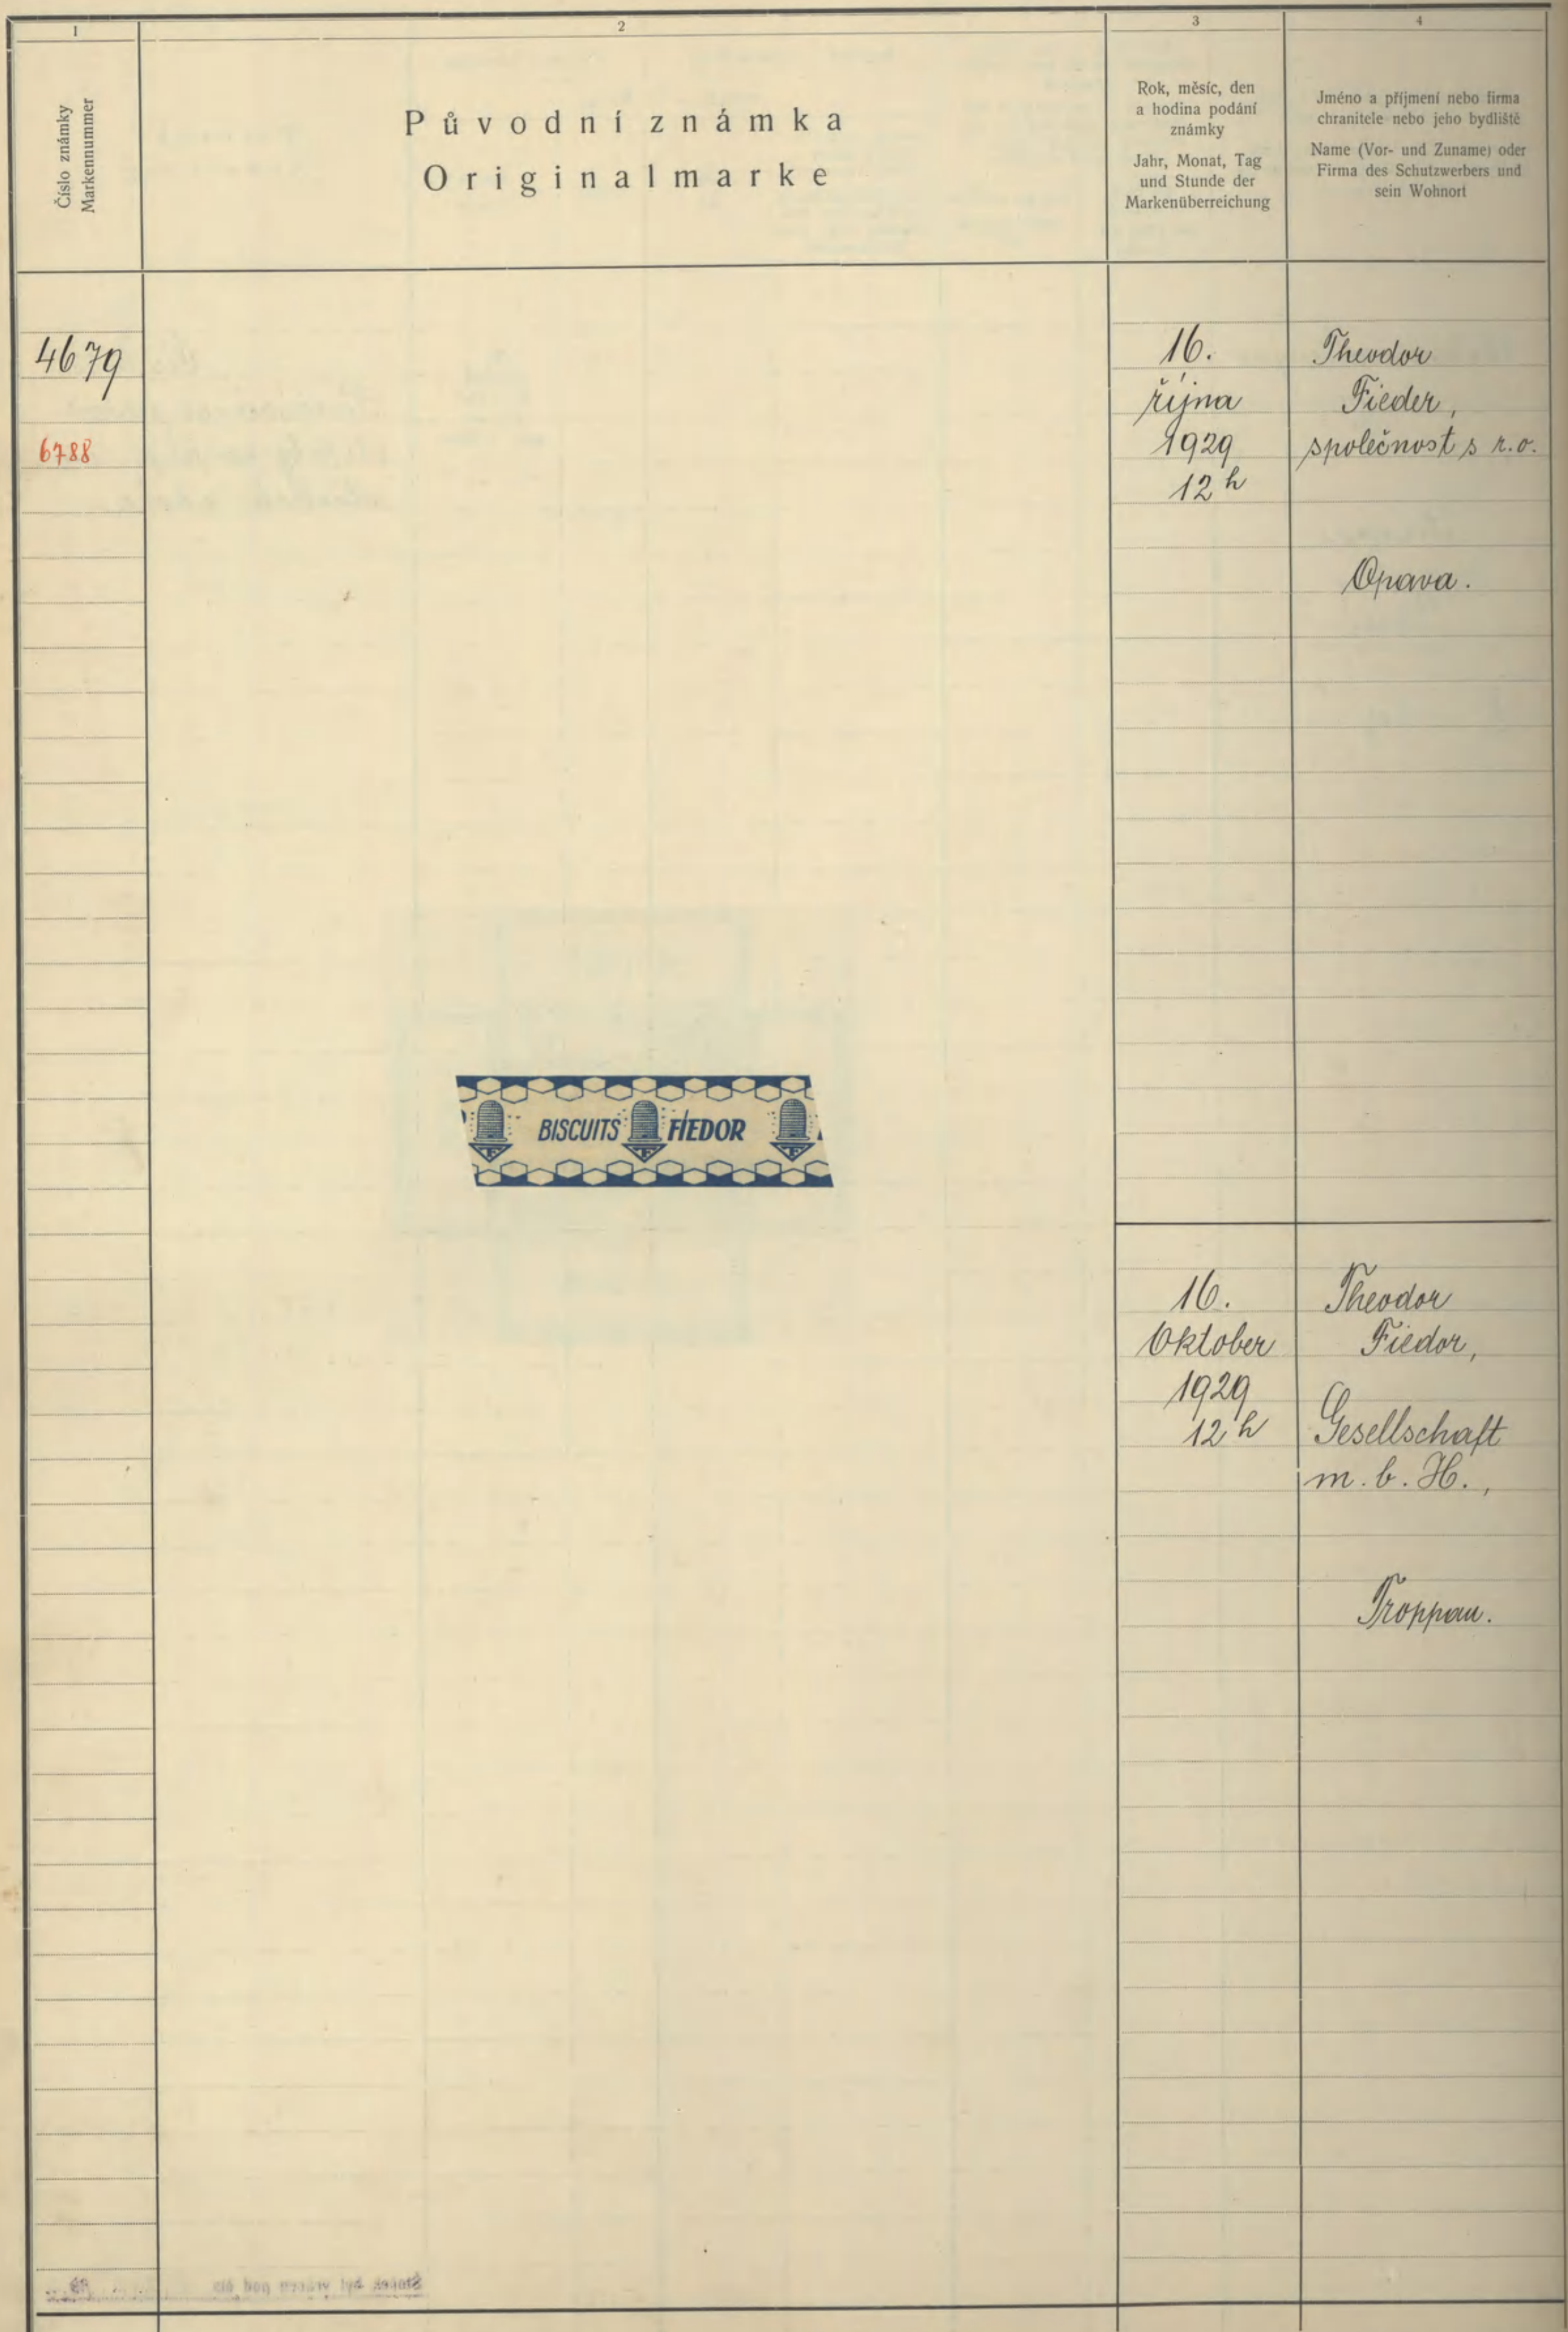 1
2
3
4
Číslo známky
Markennummer
Původní známka
Originalmarke
Rok, měsíc, den
a hodina podání
známky
Jahr, Monat, Tag
und Stunde der
Markenüberreichung
Jméno a příjmení nebo firma
chranitele nebo jeho bydliště
Name (Vor- und Zuname) oder
Firma des Schutzwerbers und
sein Wohnort
4679
6788
16.
října
1929
12 h
Theodor
Fieder,
společnost s r.o.
Opava.
BISCUITS FIEDOR
F F F
16.
Oktober
1929
12 h
Theodor
Fiedor,
Gesellschaft
m. b. H.,
Troppau.
Štoček byl vrácen pod čís